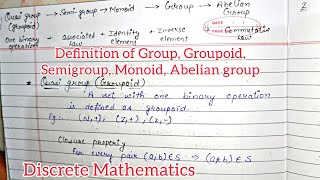 Quasi group → Semi group → Monoid → Group → Abelian Group
(groupoid)
One binary operation + associated law + Identity element + Inverse element + Commutative law
DATE
PAGE
2
Definition of Group, Groupoid,
Semigroup, Monoid, Abelian group
* Quasi group (Groupoid)
A set with one binary operation
is defined as groupoid.
Eg:- (N,+), (Z,+), (Z,-)
Closure property
For every pair (a,b) ∈ S → (a*b) ∈ S
Discrete Mathematics